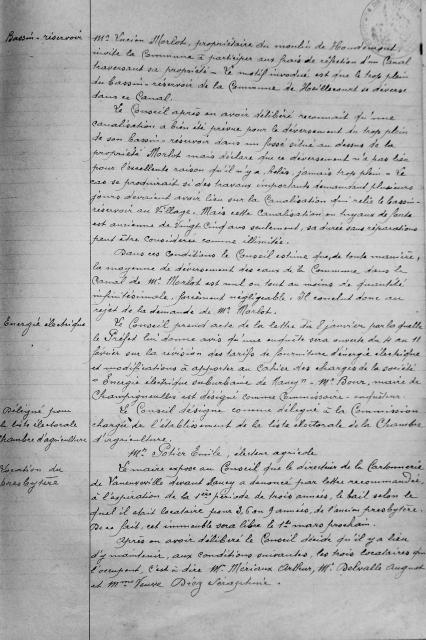 Bassin-réservoir
Mr. Lucien Morlot, propriétaire du moulin de Houdemont,
invite la Commune à participer aux frais de réfection d'un Canal
traversant sa propriété - Le motif invoqué est que le trop plein
du bassin-réservoir de la Commune de Heillecourt se déverse
dans ce Canal.
Le Conseil après en avoir délibéré reconnait qu'une
canalisation a bien été prévue pour le déversement du trop plein
de son bassin-réservoir dans un fossé situé au dessus de la
propriété Morlot mais déclare que ce déversement n'a pas lieu
pour l'excellente raison qu'il n'y a, hélas, jamais trop plein - Le
cas se produirait si des travaux importants demandant plusieurs
jours devraient avoir lieu sur la Canalisation qui relie le bassin-
réservoir au Village. Mais cette Canalisation en tuyaux de fonte
est ancienne de Vingt Cinq ans seulement, sa durée sans réparations
peut être considérée comme illimitée.
Dans ces Conditions le Conseil estime que, de toute manière,
la moyenne de déversement des eaux de la Commune dans le
Canal de Mr. Morlot est nul ou tout au moins de quantité
infinitésimale, forcément négligeable. Il conclut donc au
rejet de la demande de Mr. Morlot.
Energie électrique
Le Conseil prend acte de la lettre du 8 janvier par laquelle
le Préfet lui donne avis qu'une enquête sera ouverte du 4 au 11
février sur la révision des tarifs de fourniture d'énergie électrique
et modifications à apporter au Cahier des charges de la société
"Energie électrique suburbaine de Nancy" - Mr. Bour, maire de
Champigneulles est désigné comme Commissaire-enquêteur.
Délégué pour
la liste électorale
Chambre d'agriculture
Le Conseil désigne comme délégué à la Commission
chargée de l'établissement de la liste électorale de la Chambre
d'agriculture,
Mr. Potier Emile, électeur agricole
Location du
presbytère
Le maire expose au Conseil que le directeur de la Cartonnerie
de Laneuveville devant Nancy a dénoncé par lettre recommandée,
à l'expiration de la 1ère période de trois années, le bail selon le
quel il était locataire pour 3, 6 ou 9 années, de l'ancien presbytère.
De ce fait, cet immeuble sera libre le 1er mars prochain.
Après en avoir délibéré le Conseil décide qu'il y a lieu
d'y maintenir, aux conditions suivantes, les trois locataires qui
l'occupent, c'est à dire Mr. Mérieux Arthur, Mr. Delvalle August
et Mme Veuve Séraphine.